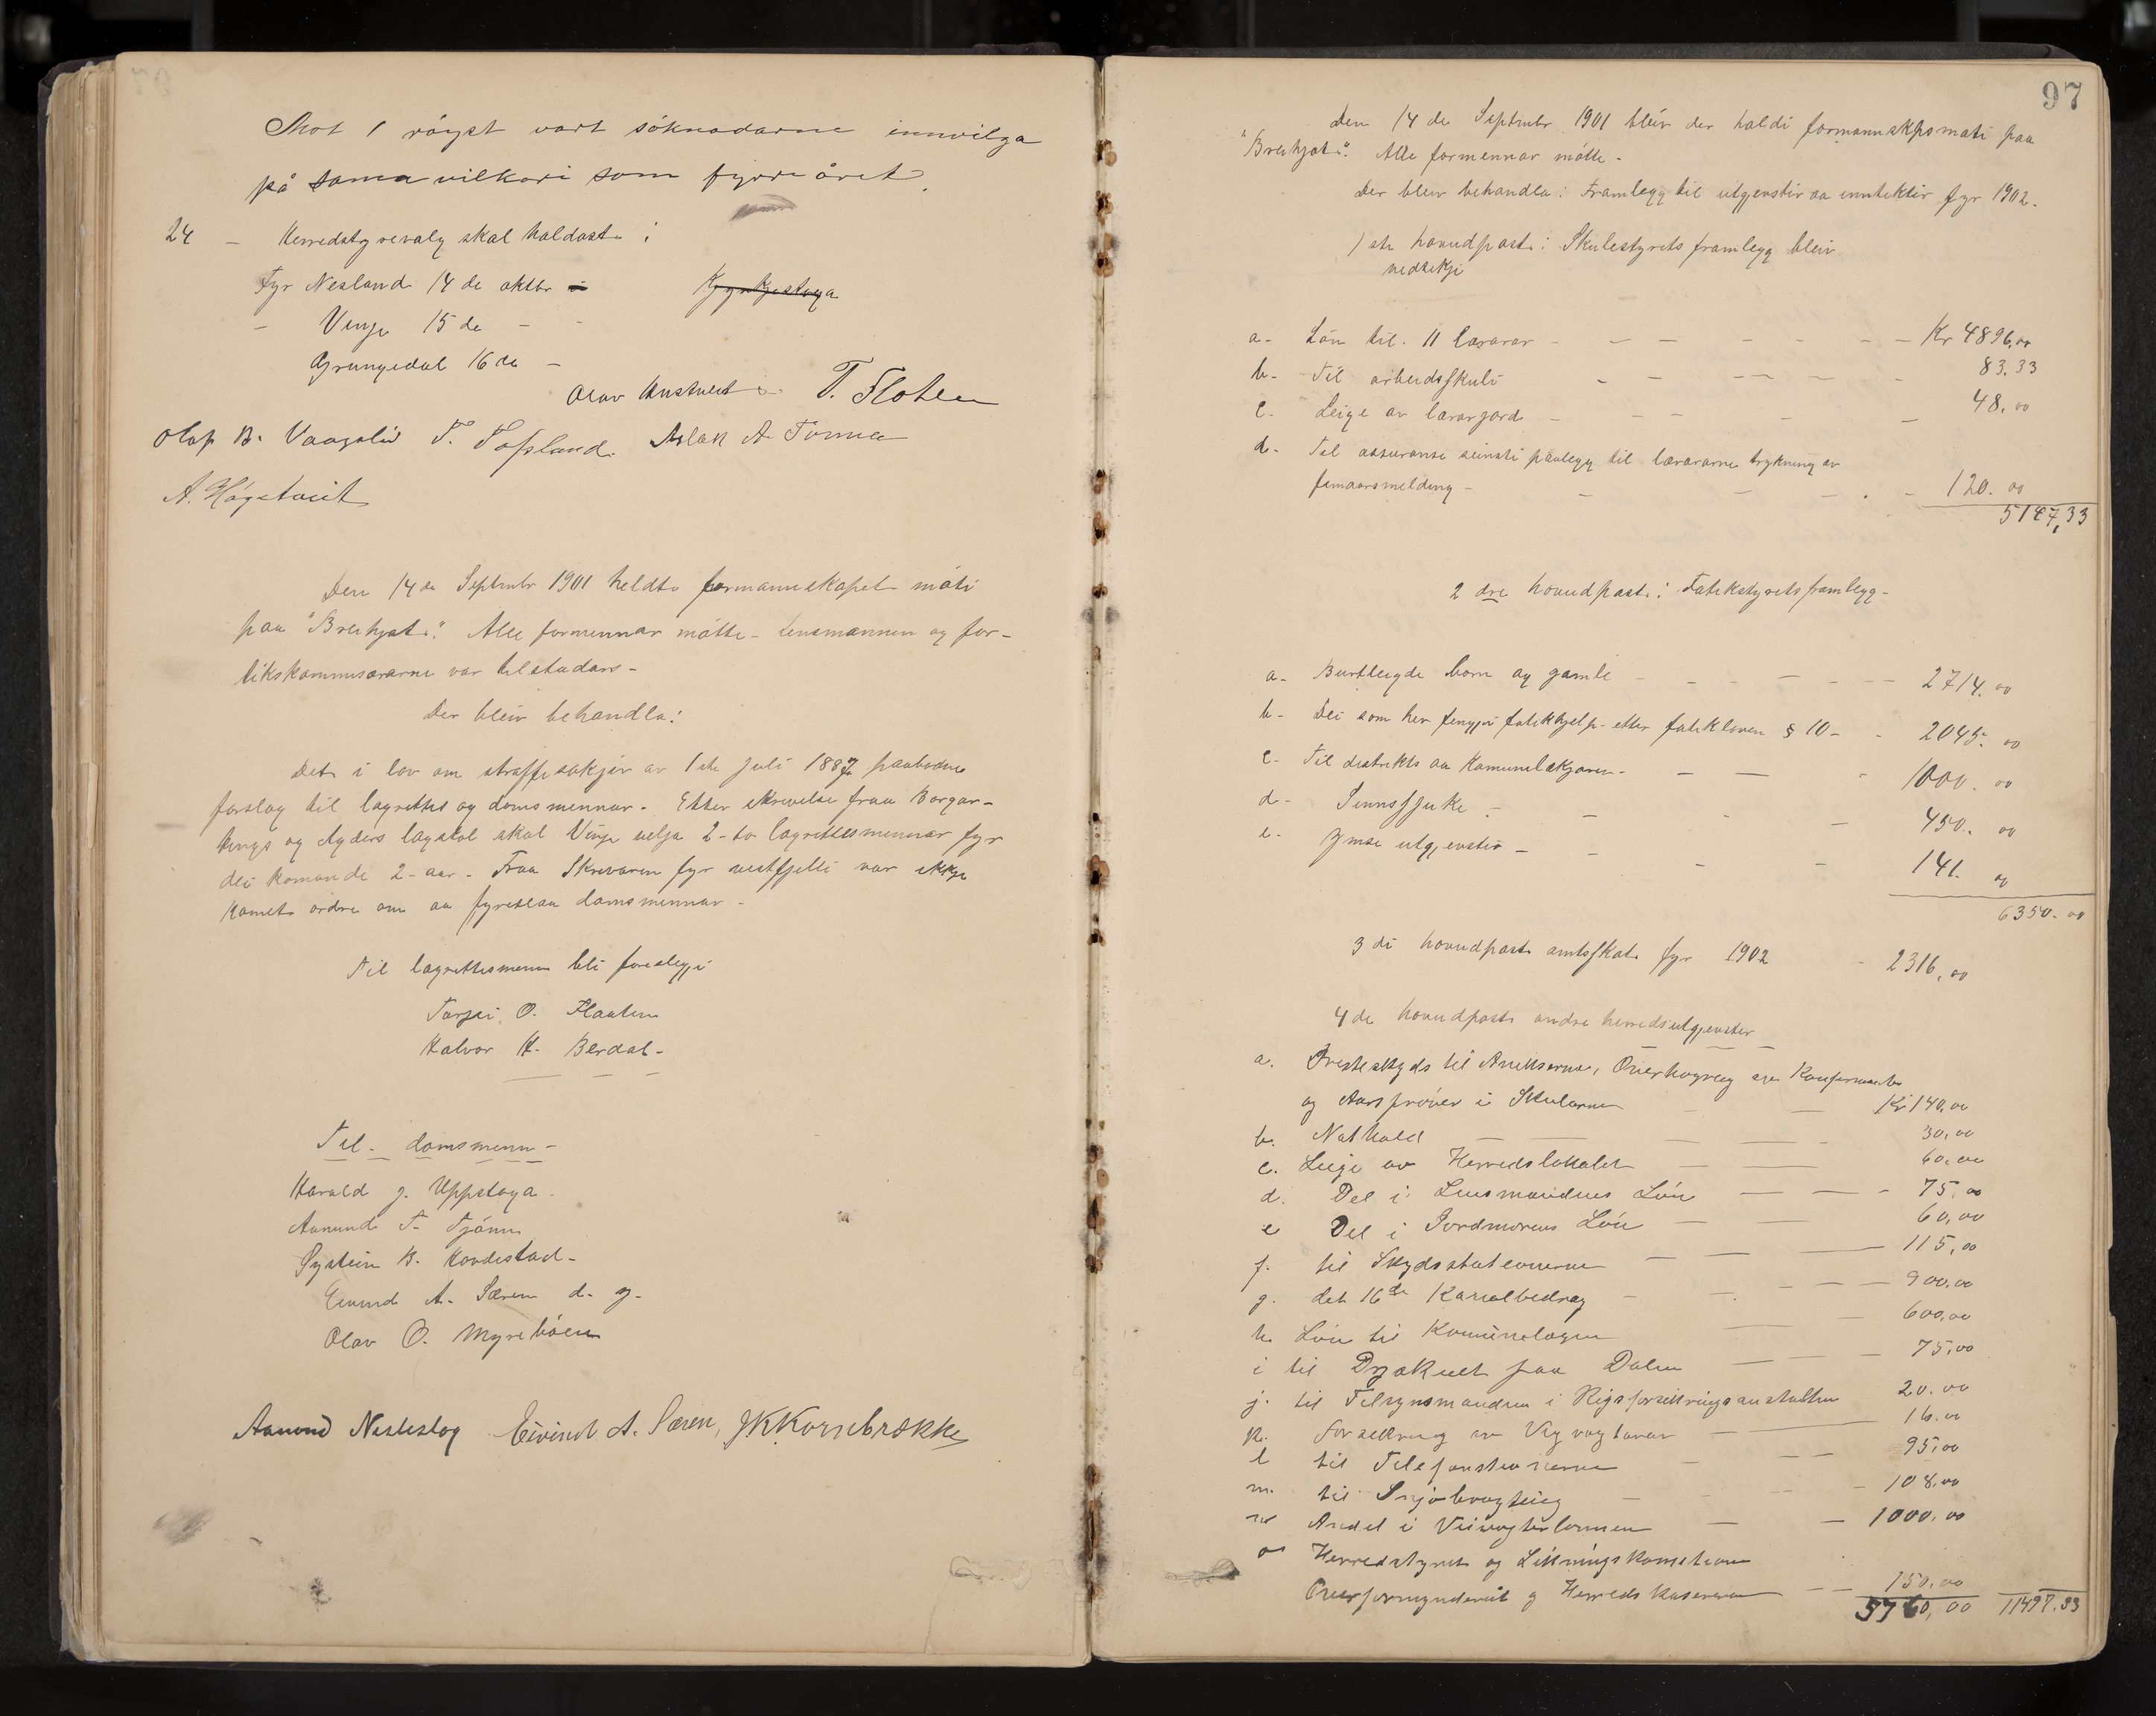 Mot 1 röyst vart söknadarne innvilga
på sama vilkori som fyrre året.
24 - Herredstyrevalg skal haldast i
Fyr Nesland 14 de oktbr - i Kyrkjestoga
- Vinje 15 de - -
Grungedal 16 de -
Olav Austveit T. Floten
Olap B. Vaagslid T. Tofsland. Aslak A. Torvea
A. Högetveit
Den 14 de Septembr 1901 heldt formannskapet möti
paa "Breihjat". Alle formennar mötte - Lensmannen og for-
likskommisærarne var tilstadar -
Der bleiv behandla:
Det i lov om straffesakjir av 1 ste juli 1887 paabodne
forslag til lagrettes og domsmennar. Etter skrivelse fraa Borgar-
tings og Agders lagstol skal Vinje velja 2 - to lagrettesmennar fyr
dei komande 2 - aar - Fraa Skrivaren fyr vestfjelli var ikkje
komet ordre om aa fyreslaa domsmennar -
Til lagrettesmenn bli foreslegje
Torjei O. Flaaten
Halvor H. Berdal -
Til - domsmenn -
Harald J. Uppstoga -
Aanund T. Tjönn
Øystein B. Hovdestad -
Eivind A. Særen d. y.
Olav O. Myreböen
Aanund Nesteslog Eivind A. Særen, JKKornbrække
97
Den 14 de Septembr 1901 bleiv der haldi formannskpsmöti paa
"Breihjat". Alle formennar mötte -
Der bleiv behandla: Framlegg til utgjenstir aa inntektir fyr 1902.
1 ste hovudpost: Skulestyrets framlegg bleiv
vedtekje
a - Lön til 11 lærarar - - - - - Kr 4896,00
b - Til arbeidsskuli - - - - 83.33
c - Leige av lærargard - - - - 48,00
d - Til assuranse seinsti paalegg til lærararne trykning av
femaarsmelding - - - - 120.00
5147,33
2 dre hovudpost: Fatikstyrets framlegg -
a - Burtleigde born og gamle - - - - 2714.00
b - Dei som hev fengje fatikhjelp etter fatikloven § 10 - - 2045.00
c - Til distrikts aa Komunelækjaren - - - 1000.00
d - Sinnssjuke - - - 450.00
e - Ymse utgjenstir - - - - 141.00
6350.00
3 di hovudpost amtsskat fyr 1902 - 2316,00
4 de hovudpost andre herredsutgjenster
a. Presteskyds til Anneksarne, Overhøyring av Konfirmantar
og Aarsprøver i Skularne - - Kr 140,00
b. Nathald - - - - 30,00
c. Leige av Herredslokalet - - 60,00
d. Del i Lensmandens Lön - - - 75,00
e Del i Jordmorens Lön - - 60,00
f. til Skydsstationerne - - - 115,00
g. det 16de Kanalbedrag - - - 900,00
h. Lön til Komunelægen - - 600,00
i til Dyrskuet paa Dalen - - - 75,00
j. til Tilsynsmanden i Rigsforsikringsanstalten 20.00
k. Forsikring av Vegvogtarar - 16.00
l til Telefonstationerne - - - 95,00
m. til Snjobrøyting - - - - 108,00
n Andel i Veivogterlønnen - - 1000,00
o Herredstyret og Likningskomissionen
Overformynderiet og Herredskasserar - - 150,00
3760,00 11497.33